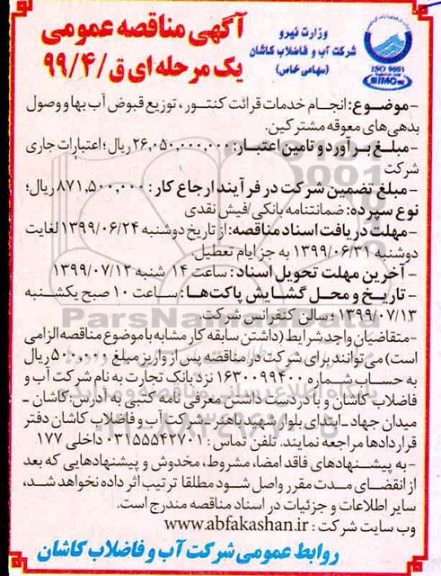 آگهی مناقصه عمومی
یک مرحله ای ق/۹۹/۴
وزارت نیرو
شرکت آب و فاضلاب کاشان
(سهامی خاص)
ISO 9001
-موضوع: انجام خدمات قرائت کنتور، توزیع قبوض آب بها و وصول
بدهی های معوقه مشترکین.
-مبلغ برآورد و تامین اعتبار: ۲۶,۰۵۰,۰۰۰,۰۰۰ ریال؛ اعتبارات جاری
شرکت
-مبلغ تضمین شرکت در فرآیند ارجاع کار: ۸۷۱,۵۰۰,۰۰۰ ریال؛
نوع سپرده: ضمانتنامه بانکی/فیش نقدی
-مهلت دریافت اسناد مناقصه: از تاریخ دوشنبه ۱۳۹۹/۰۶/۲۴ لغایت
دوشنبه ۱۳۹۹/۰۶/۳۱ به جز ایام تعطیل
-آخرین مهلت تحویل اسناد: ساعت ۱۴ شنبه ۱۳۹۹/۰۷/۱۲
-تاریخ و محل گشایش پاکت ها: ساعت ۱۰ صبح یکشنبه
۱۳۹۹/۰۷/۱۳؛ سالن کنفرانس شرکت.
-متقاضیان واجد شرایط (داشتن سابقه کار مشابه با موضوع مناقصه الزامی
است) می توانند برای شرکت در مناقصه پس از واریز مبلغ ۵۰۰,۰۰۰ ریال
به حساب شماره نزد بانک تجارت به نام شرکت آب و
فاضلاب کاشان و با در دست داشتن معرفی نامه کتبی به آدرس: کاشان -
میدان جهاد - ابتدای بلوار شهید باهنر - شرکت آب و فاضلاب کاشان دفتر
قراردادها مراجعه نمایند. تلفن تماس: ۰۳۱۵۵۵۴۲۷۰۱ داخلی ۱۷۷
-به پیشنهادهای فاقد امضا، مشروط، مخدوش و پیشنهادهایی که بعد
از انقضای مدت مقرر واصل شود مطلقا ترتیب اثر داده نخواهد شد،
سایر اطلاعات و جزئیات در اسناد مناقصه مندرج است.
وب سایت شرکت: www.abfakashan.ir
روابط عمومی شرکت آب و فاضلاب کاشان